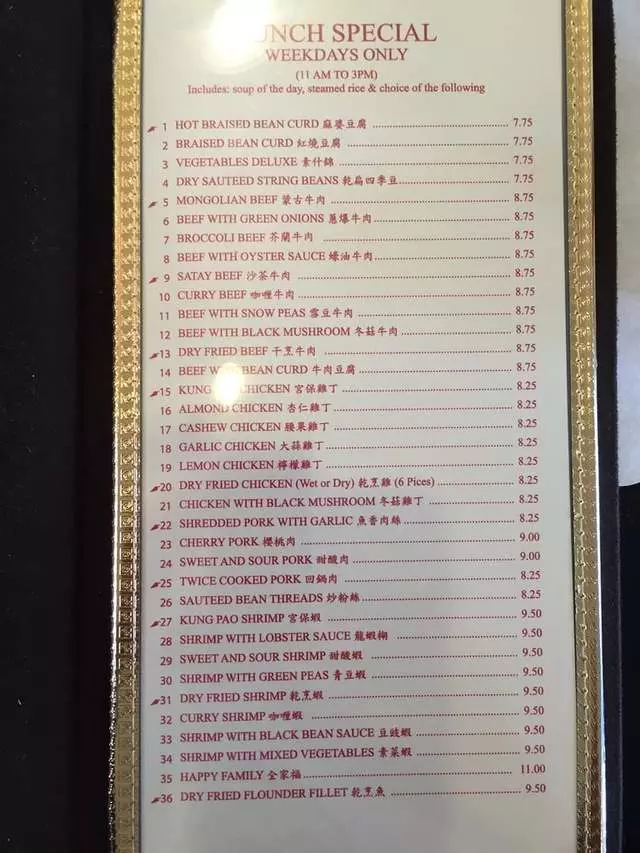 UNCH SPECIAL
WEEKDAYS ONLY
(11 AM TO 3PM)
Includes: soup of the day, steamed rice & choice of the following
1 HOT BRAISED BEAN CURD 麻婆豆腐 7.75
2 BRAISED BEAN CURD 紅燒豆腐 7.75
3 VEGETABLES DELUXE 素什錦 7.75
4 DRY SAUTEED STRING BEANS 乾扁四季豆 7.75
5 MONGOLIAN BEEF 蒙古牛肉 8.75
6 BEEF WITH GREEN ONIONS 蔥爆牛肉 8.75
7 BROCCOLI BEEF 芥蘭牛肉 8.75
8 BEEF WITH OYSTER SAUCE 蠔油牛肉 8.75
9 SATAY BEEF 沙茶牛肉 8.75
10 CURRY BEEF 咖喱牛肉 8.75
11 BEEF WITH SNOW PEAS 雪豆牛肉 8.75
12 BEEF WITH BLACK MUSHROOM 冬菇牛肉 8.75
13 DRY FRIED BEEF 干烹牛肉 8.75
14 BEEF W BEAN CURD 牛肉豆腐 8.75
15 KUNG CHICKEN 宮保雞丁 8.25
16 ALMOND CHICKEN 杏仁雞丁 8.25
17 CASHEW CHICKEN 腰果雞丁 8.25
18 GARLIC CHICKEN 大蒜雞丁 8.25
19 LEMON CHICKEN 檸檬雞丁 8.25
20 DRY FRIED CHICKEN (Wet or Dry) 乾烹雞 (6 Pices) 8.25
21 CHICKEN WITH BLACK MUSHROOM 冬菇雞丁 8.25
22 SHREDDED PORK WITH GARLIC 魚香肉絲 8.25
23 CHERRY PORK 櫻桃肉 9.00
24 SWEET AND SOUR PORK 甜酸肉 9.00
25 TWICE COOKED PORK 回鍋肉 8.25
26 SAUTEED BEAN THREADS 炒粉絲 8.25
27 KUNG PAO SHRIMP 宮保蝦 9.50
28 SHRIMP WITH LOBSTER SAUCE 龍蝦糊 9.50
29 SWEET AND SOUR SHRIMP 甜酸蝦 9.50
30 SHRIMP WITH GREEN PEAS 青豆蝦 9.50
31 DRY FRIED SHRIMP 乾烹蝦 9.50
32 CURRY SHRIMP 咖喱蝦 9.50
33 SHRIMP WITH BLACK BEAN SAUCE 豆豉蝦 9.50
34 SHRIMP WITH MIXED VEGETABLES 素菜蝦 9.50
35 HAPPY FAMILY 全家福 11.00
36 DRY FRIED FLOUNDER FILLET 乾烹魚 9.50